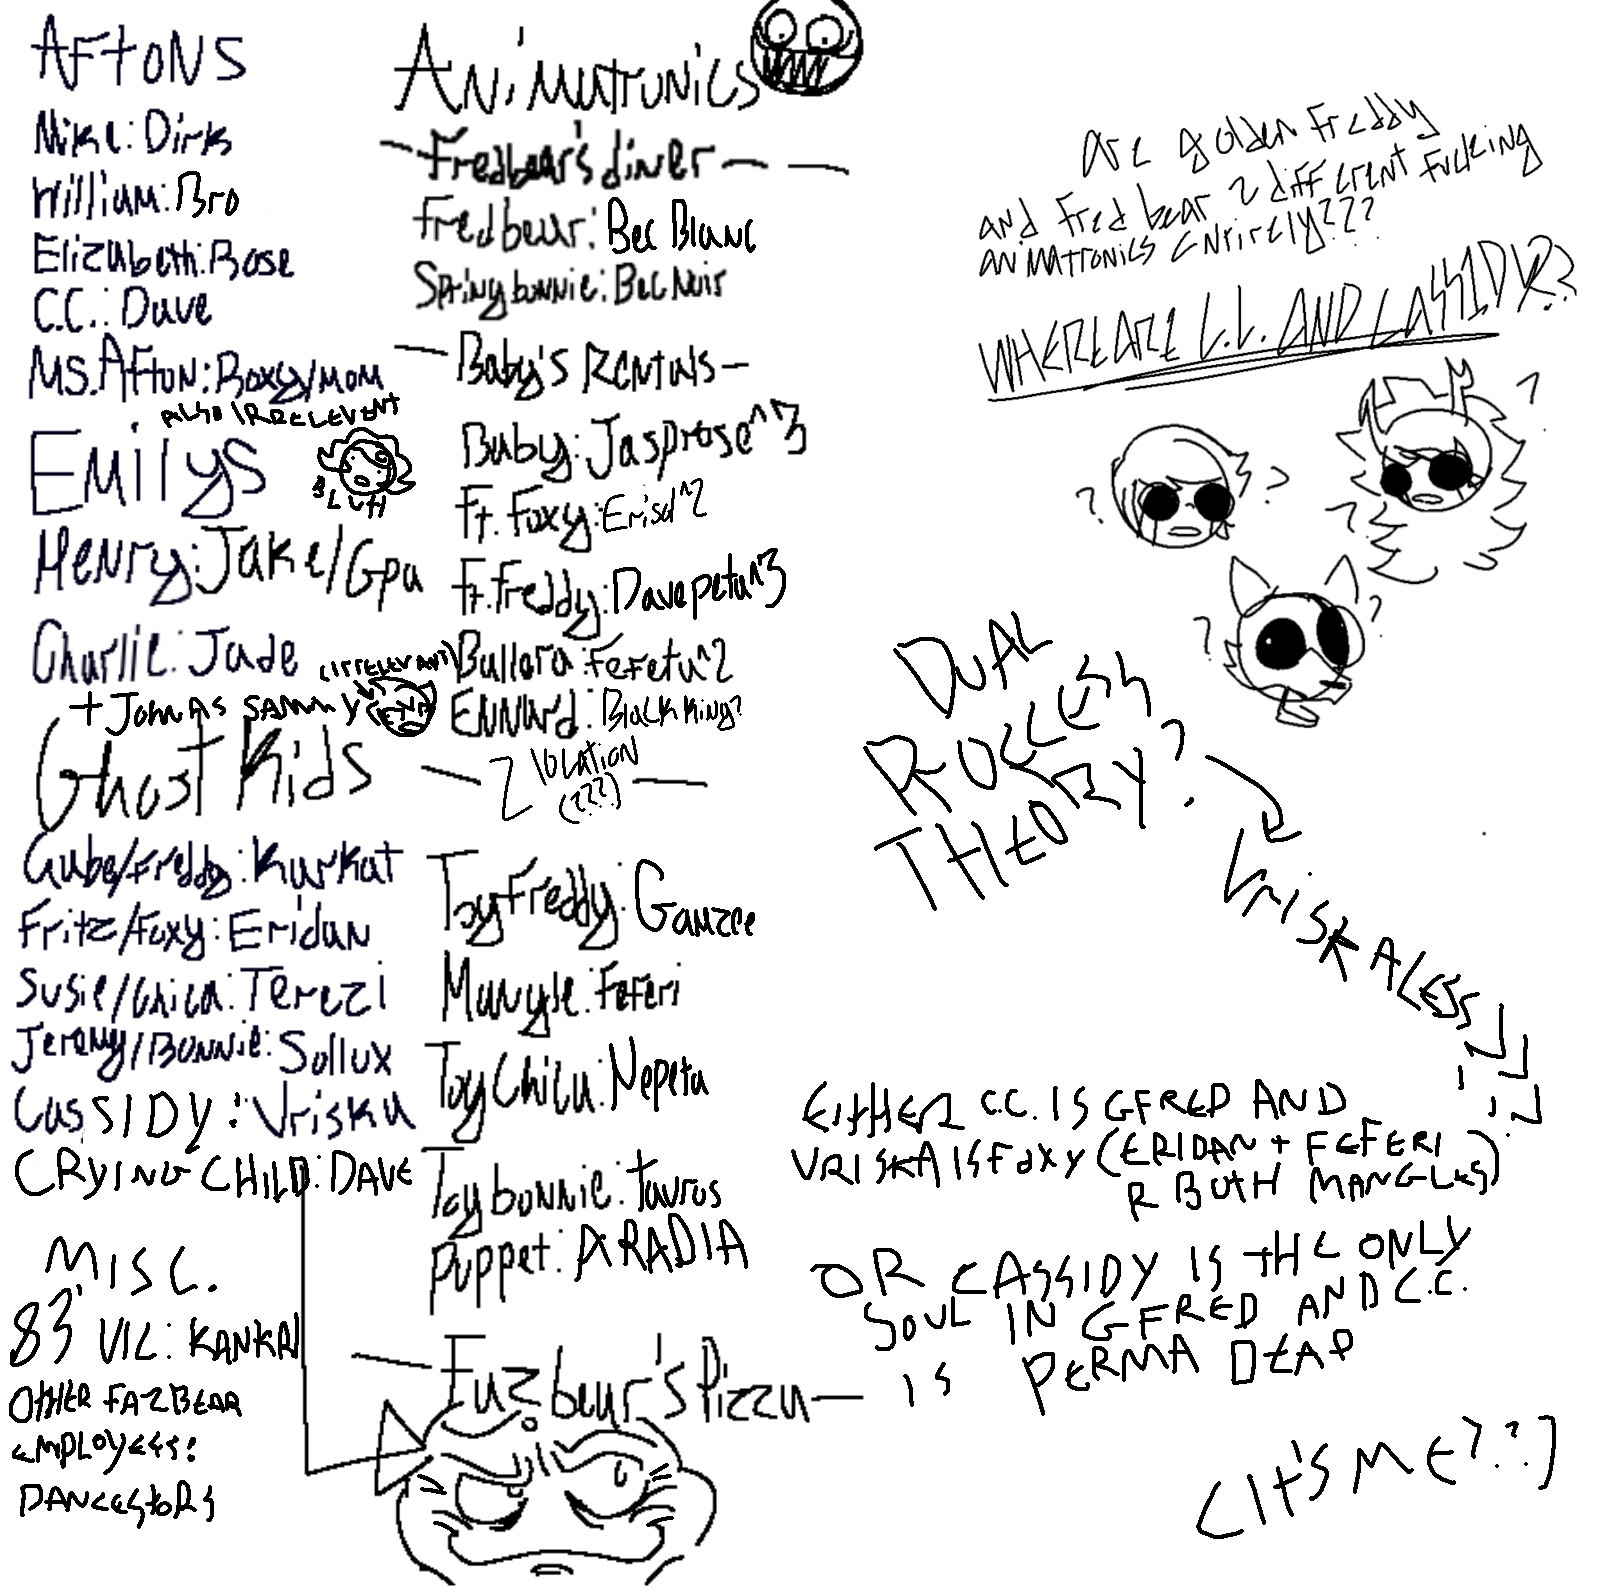 AFtONS
Mike: Dirk
William: Bro
Elizabeth: Rose
C.C.: Dave
MS. AFton: Roxy/MOM
Also IRRELEVENT
Emilys
BLUH
Henry: Jake/Gpa
Charlie: Jade
(irrelevant)
+ John as sammy
Ghost Kids
Gabe/Freddy: Karkat
Fritz/Foxy: Eridan
Susie/Chica: Terezi
Jeremy/Bonnie: Sollux
CasSIDY: Vriska
CRYING CHILD: DAVE
MISC.
83' VIL: KANKRI
OTHER FAZBEAR
EMPLOYEES:
DANCESTORS
Animatronics
Fredbear's diner
Fredbear: Bec Blanc
Springbonnie: Bec Noir
Baby's Rentals
Baby: Jasprose^3
Ft. Foxy: Erisol^2
Ft. Freddy: Davepeta^3
Ballora: Fefeta^2
Ennard: Black king?
2 location
(???)
Toy Freddy: Gamzee
Mangle: Feferi
Toy Chica: Nepeta
Toy bonnie: Tavros
Puppet: ARADIA
Fazbear's Pizza
Are golden Freddy
and Fredbear 2 different fucking
animatronics entirely???
WHERE ARE C.C. AND CASSIDY??
? ? ? ? ? ?
DUAL
PROCESS
THEORY?
VRISKALESS
EITHER C.C. IS GFRED AND
VRISKA IS FOXY (ERIDAN + FEFERI
R BOTH MANGLES)
OR CASSIDY IS THE ONLY
SOUL IN GFRED AND C.C.
IS PERMA DEAD
(It'S ME???)